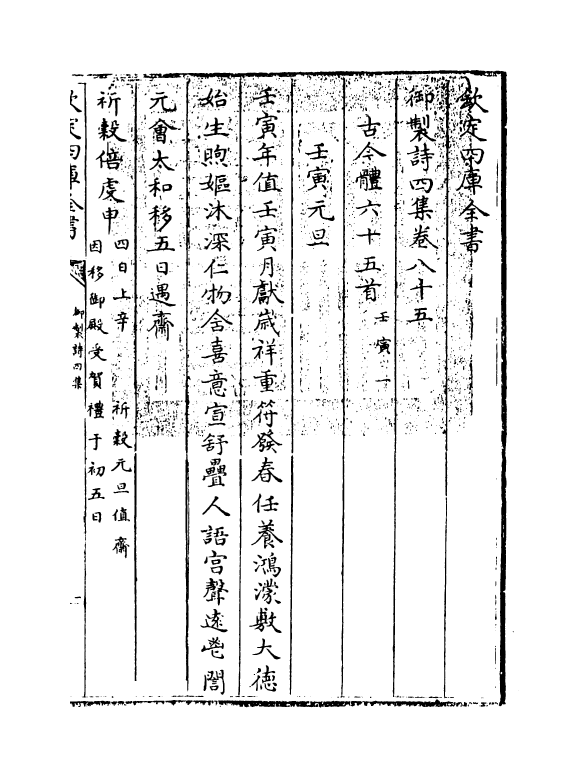 欽定四庫全書
御製詩四集卷八十五
古今體六十五首 壬寅一
壬寅元旦
壬寅年值壬寅月獻歳祥重符發春任養鴻濛敷大德
始生煦嫗沐深仁物含喜意宣舒疊人語宫聲逺邇誾
元會太和移五日遇齋
祈穀倍䖍申 四日上辛 祈穀元旦值齋
因移御殿受賀禮于初五日
欽定四庫全書
御製詩四集
一